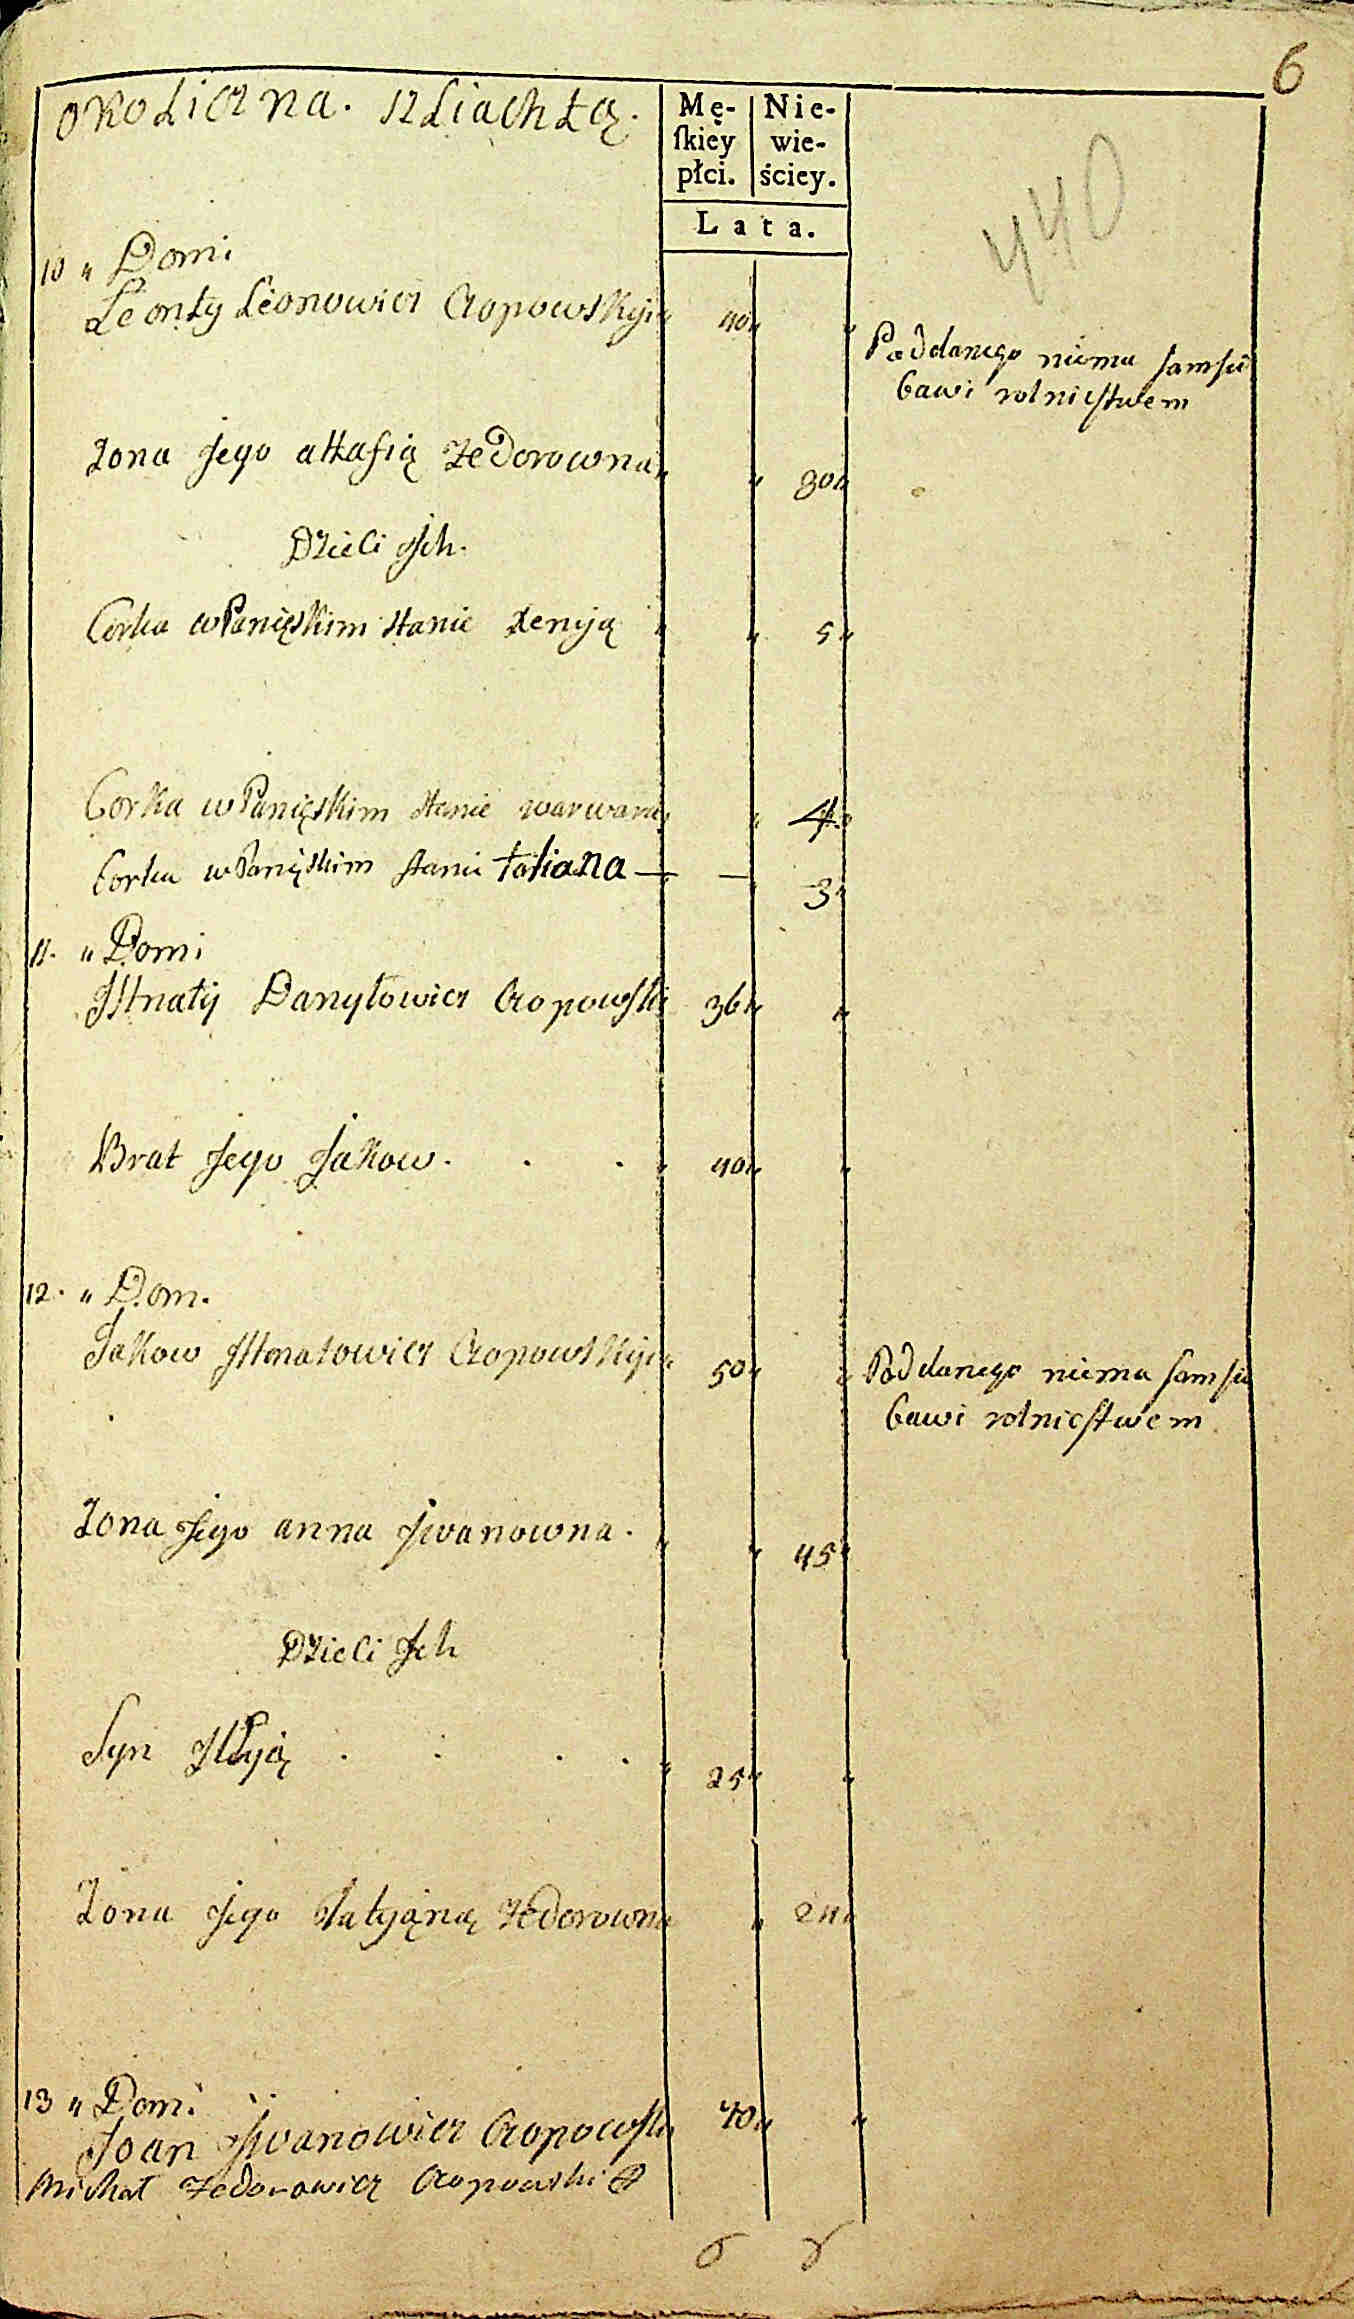 6
okoliczna. szliachtą.
Mę-skiey płci.
Nie-wie-ściey.
Lata.
440
10 „ Dom:
Leonty Leonowicz Czopowskyi 40
Poddanego niema sam sie
bawi rolniestwem
Zona Jego attafią Fedorowna 30
Dzieci Jch.
Corka w Panięskim stanie Xeniją 5
Corka w Panięskim stanie warwara 4
Corka w Panięskim stanie tatiana — — 3
11. „ Dom:
Jhnatÿ Danyłowicz Czopowski 36
Brat Jego Jakow . . . 40
12. „ Dom.
Jakow Jhnatowicz Czopowskyi 50
Poddanego niema sam sie
bawi rolniestwem
Zona Jego anna Jwanowna . 45
Dzieci Jch
Syn Jllyią . . . . 25
Zona Jego Tatyąną Fedorowna 24
13 „ Dom:
Joan Jwanowicz Czopowski 70
Michał Fedorowicz Czopowski
6 8